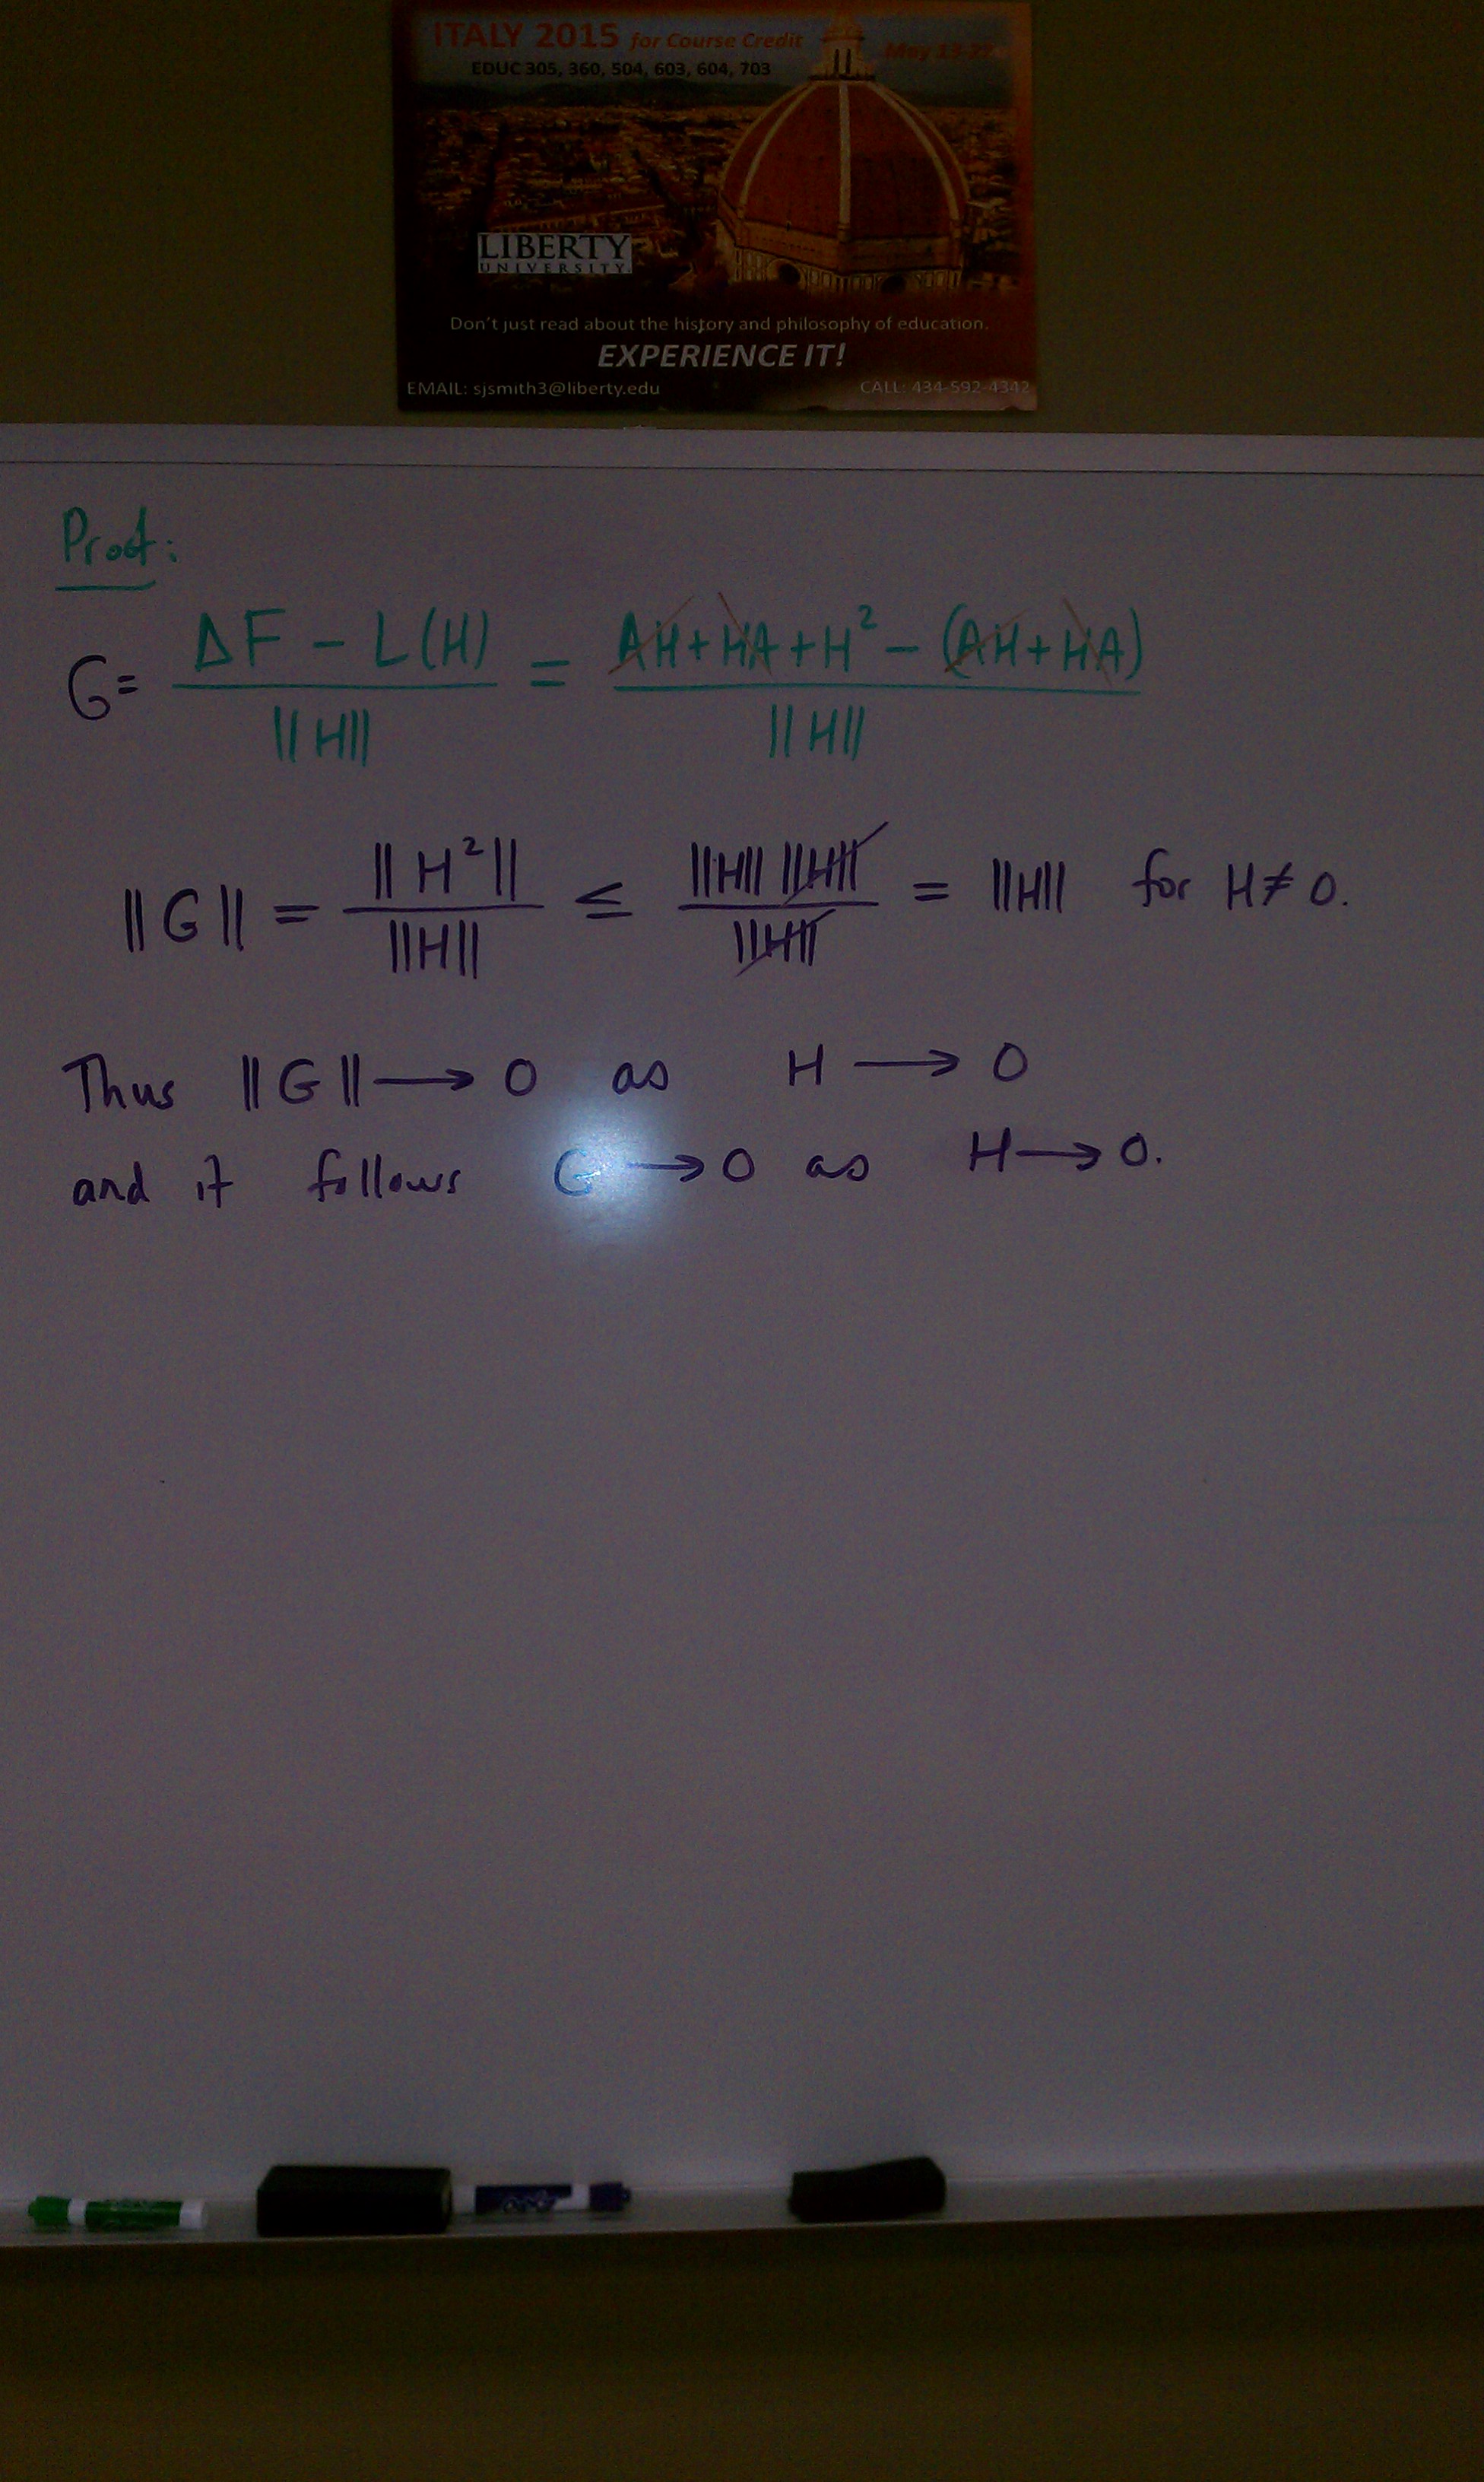 ITALY 2015 for Course Credit May 13-27
EDUC 305, 360, 504, 603, 604, 703
LIBERTY
UNIVERSITY
Don't just read about the history and philosophy of education.
EXPERIENCE IT!
EMAIL: sjsmith3@liberty.edu CALL: 434-592-4342
Proof:
G = (ΔF - L(H)) / ||H|| = (AH + HA + H² - (AH + HA)) / ||H||
||G|| = ||H²|| / ||H|| ≤ ||H|| ||H|| / ||H|| = ||H|| for H ≠ 0.
Thus ||G|| → 0 as H → 0
and it follows G → 0 as H → 0.
EXPO